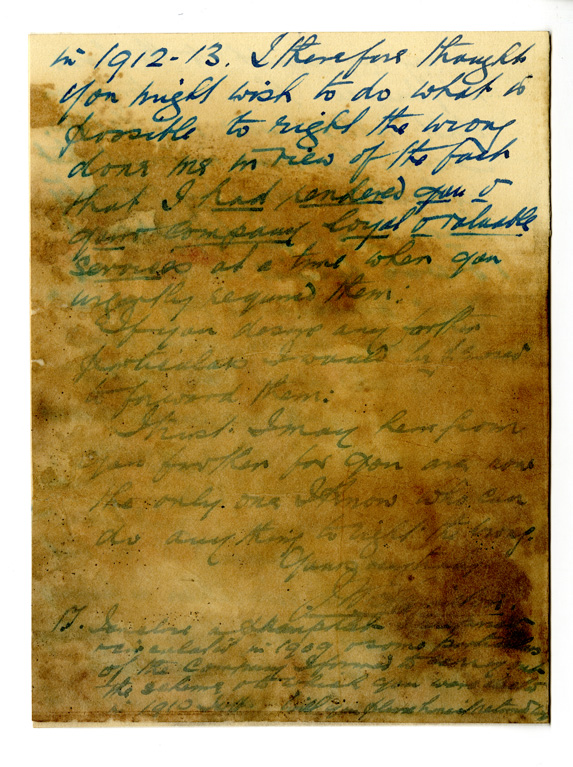 in 1912-13. I therefore thought
you might wish to do what is
possible to right the wrong
done me in view of the fact
that I had rendered you &
your Company loyal & valuable
services at a time when you
urgently required them.
If you desire any further
particulars I would be
to forward them.
I trust I may hear from
you further for you are now
the only one I know who can
do anything to right the wrong.
Yours
in 1909
of the Company formed to carry out
the scheme you were
in 1912